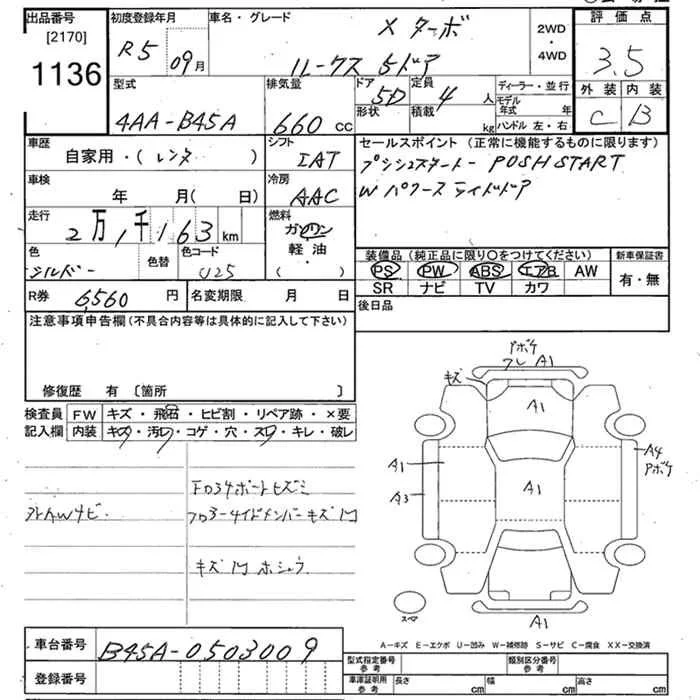 出品番号
[2170]
1136
初度登録年月
R5 09月
車名・グレード
X ターボ
ルークス 5ドア
2WD
・
4WD
評価点
3.5
外装 内装
C B
型式
4AA-B45A
排気量
660 cc
ドア 5D
形状
定員 4 人
積載 kg
ディーラー・並行
モデル年式 年
ハンドル 左・右
車歴
自家用・(レンタ )
シフト
IAT
セールスポイント (正常に機能するものに限ります)
プッシュスタート- POSH START
W パワースライドドア
車検
年 月( 日)
冷房
AAC
走行
2万1千163 km
燃料
ガソリン
軽油
( ・ )
色
シルバー
色替
色コード
U25
装備品 (純正品に限り○をつけてください)
PS PW ABS エアB AW
SR ナビ TV カワ
新車保証書
有・無
R券 6,560 円
名変期限 月 日
後日品
注意事項申告欄 (不具合内容等は具体的に記入して下さい)
修復歴 有 〔箇所 〕
検査員
記入欄
FW キズ・飛石・ヒビ割・リペア跡・×要
内装 キズ・汚レ・コゲ・穴・スレ・キレ・破レ
キズ
アボケ
フレ A1
A1
A1
A1
A3
A4
アボケ
A1
スペア
キズ凹ホシュウ
A-キズ E-エクボ U-凹み W-補修跡 S-サビ C-腐食 XX-交換済
車台番号 B45A-0503009
登録番号
型式指定番号
参考
類別区分番号
参考
車庫証明用
参考
長さ cm 幅 cm 高さ cm